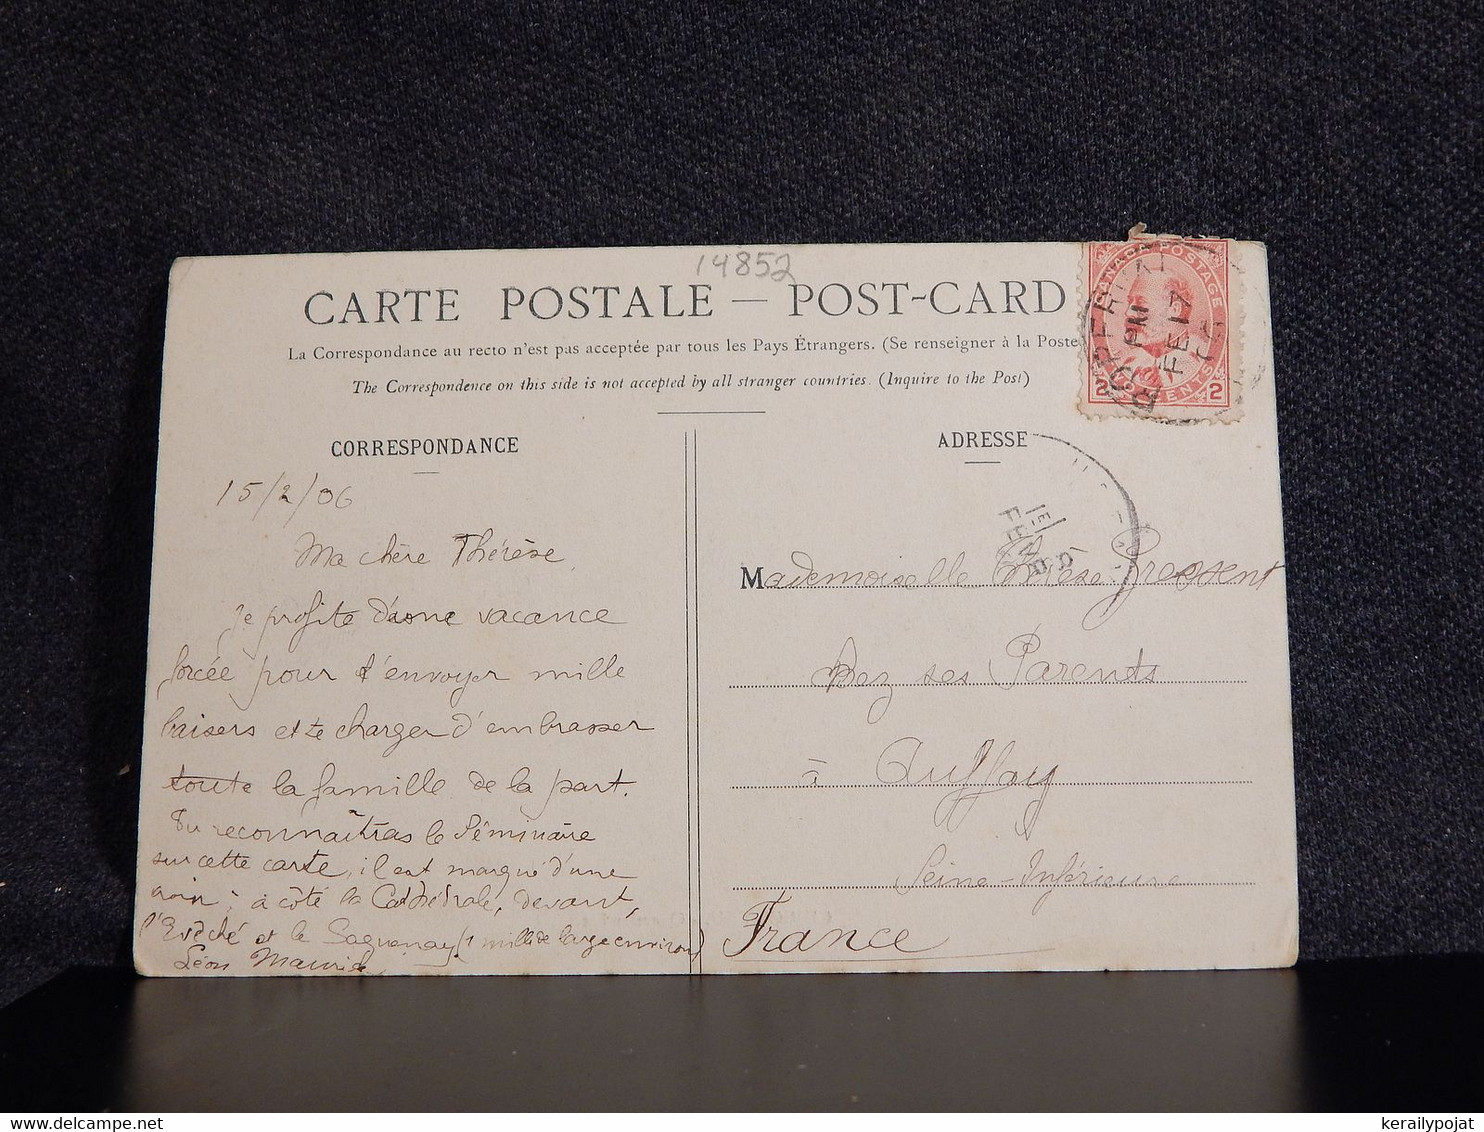 14852
CARTE POSTALE — POST-CARD
La Correspondance au recto n'est pas acceptée par tous les Pays Étrangers. (Se renseigner à la Poste
The Correspondence on this side is not accepted by all stranger countries. (Inquire to the Post)
CANADA POSTAGE
2 CENTS 2
PM
FE 17
CORRESPONDANCE
15/2/06
Ma chère Thérèse,
Je profite d'une vacance
forcée pour t'envoyer mille
baisers et te charger d'embrasser
toute la famille de la part.
Tu reconnaîtras le Séminaire
sur cette carte, il est marqué d'une
croix ; à côté la Cathédrale, devant,
l'Evêché et le Saguenay (1 mille de large environ)
Léon Maurice
ADRESSE
Mademoiselle Thérèse
chez ses Parents
à Auffay
Seine-Inférieure
France
kerailypojat